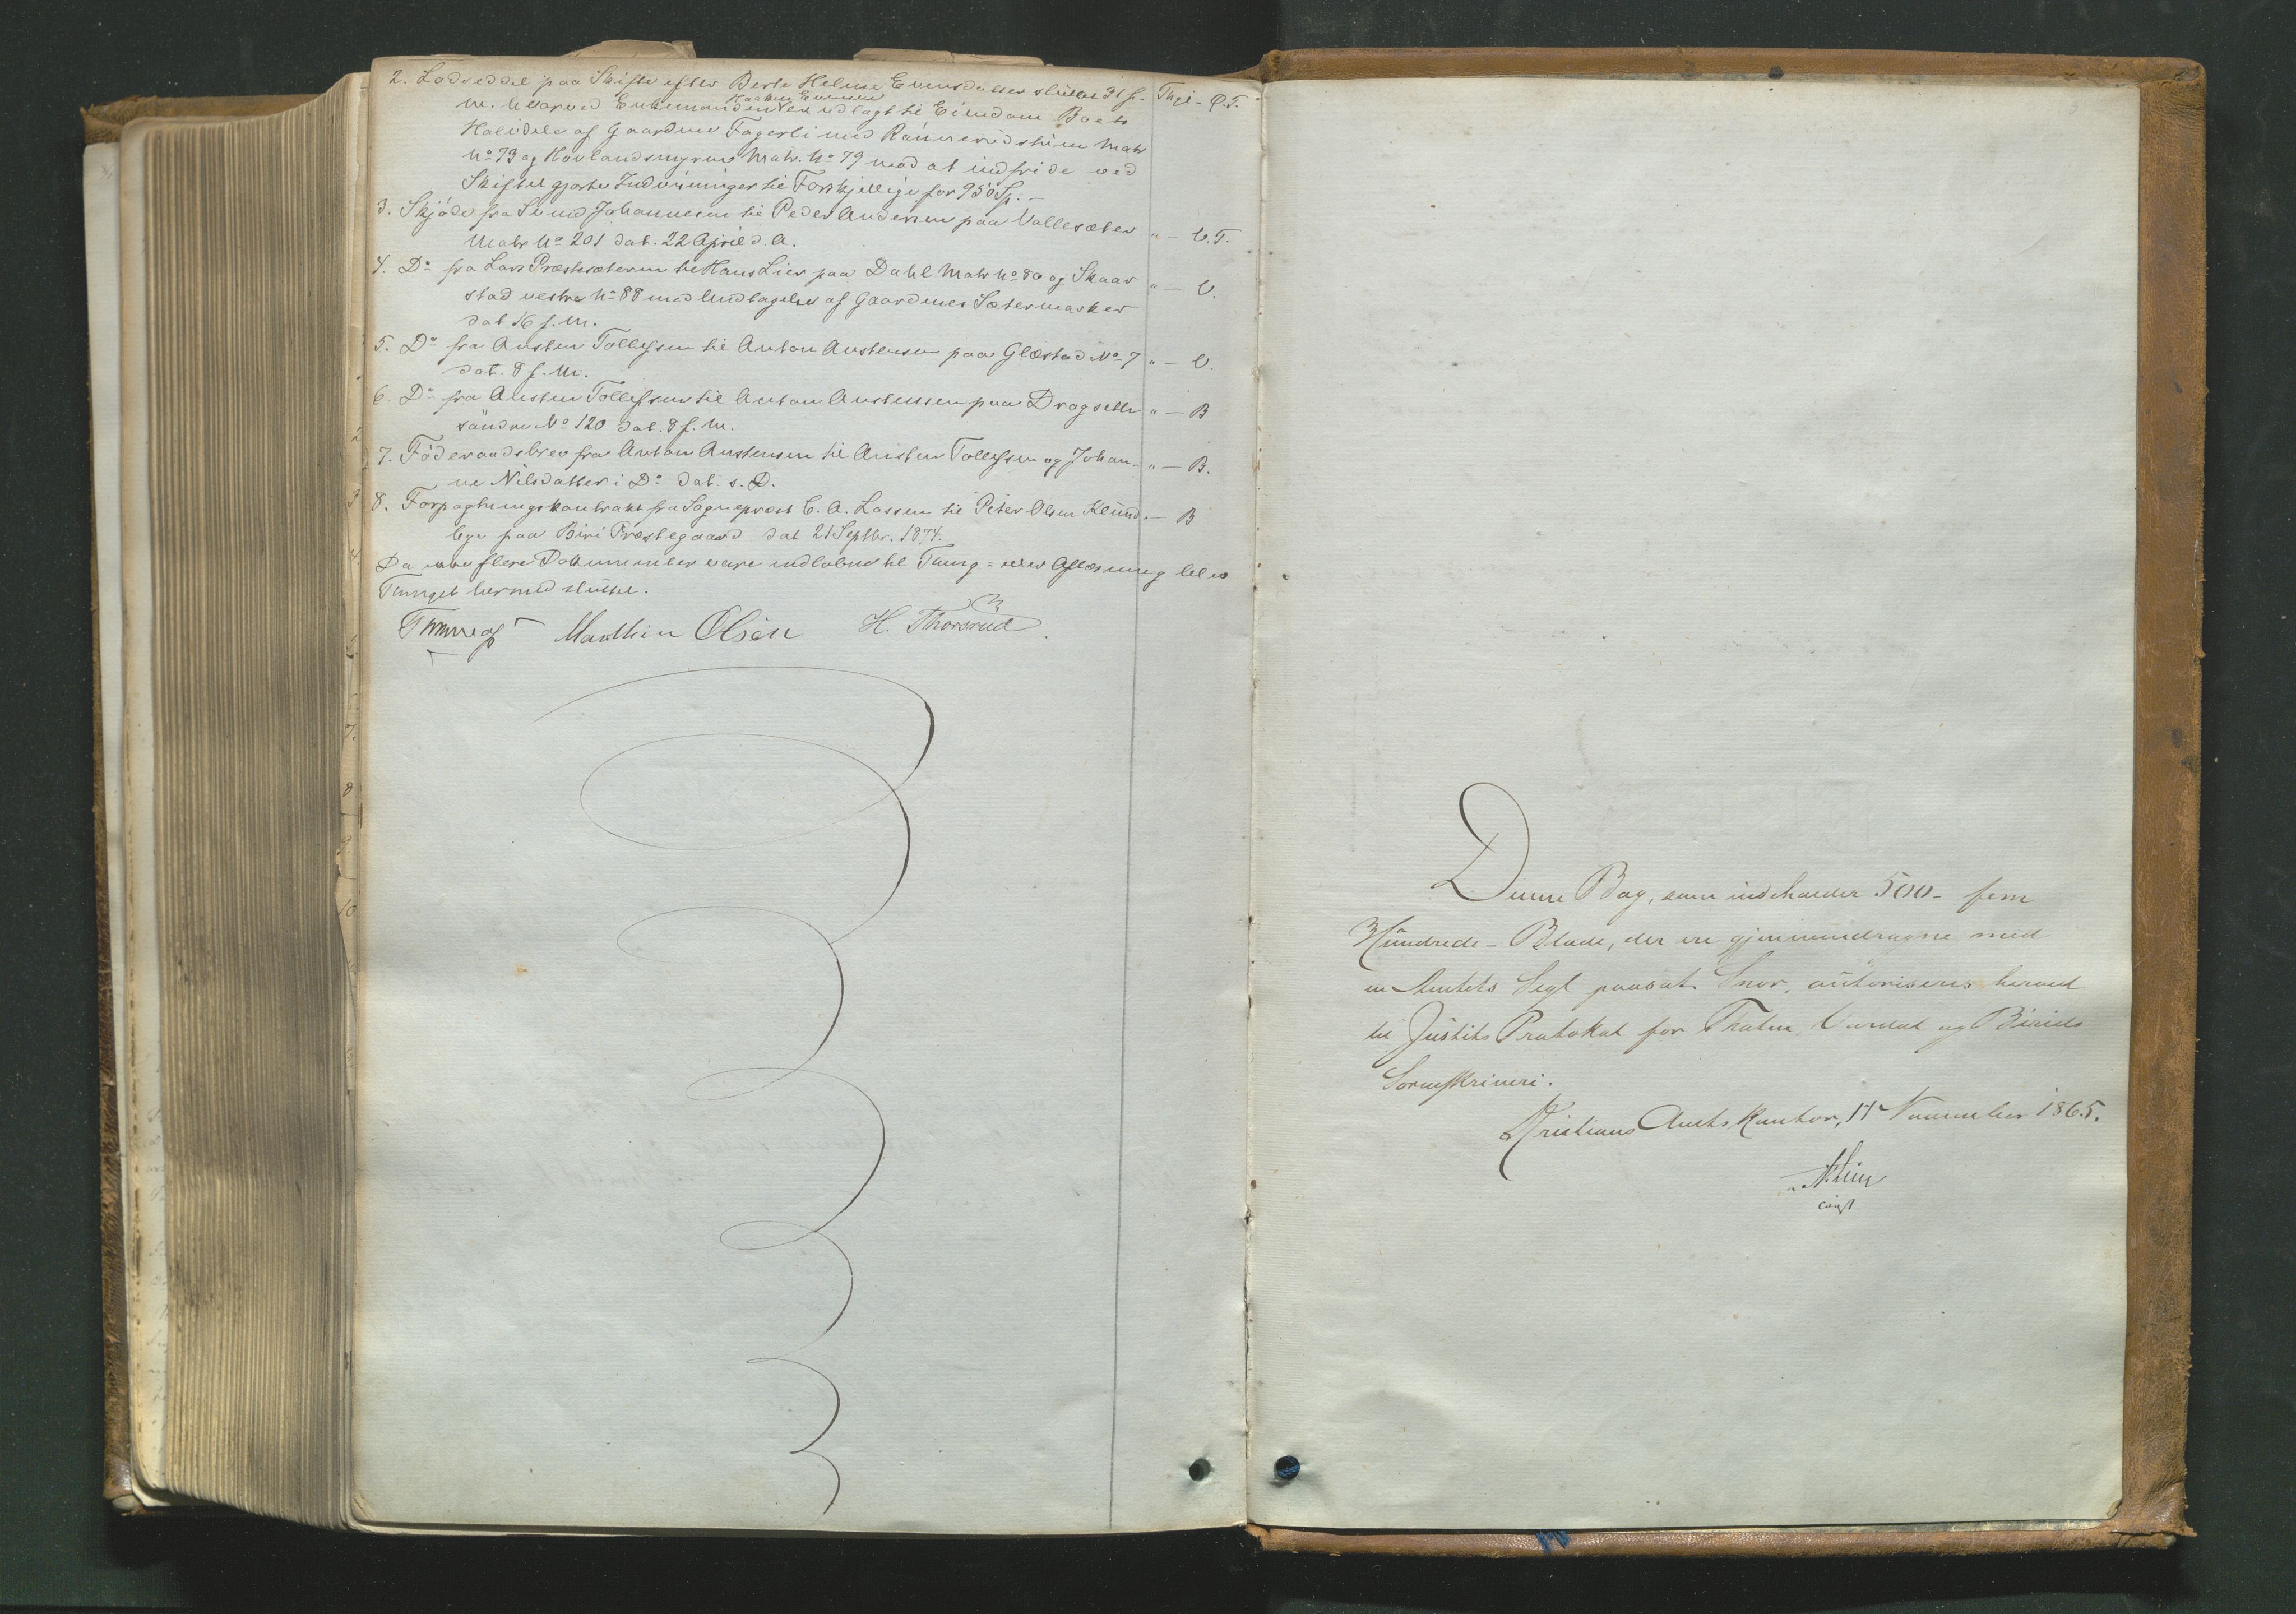 2. Lodseddel paa Skifte efter Berte Helene Evensdatter sluttet 31 f. Thgl - Ø.T.
M. hvorved Enkemanden Haaken Evensen er udlagt til Eiendom
Halvdele af Gaardene Fagerli med Rønnerudshúen Matr
No 73 og Hovlandsmyrene Matr. No 79 mod at indfri de ved
Skiftet gjorte Indvisninger til Forskjellige for 950 Sp. -
3. Skjøde fra Svend Johannesen til Peder Andersen paa Vallesæter " - V.T.
Matr No 201 dat. 22 April d. A.
4. Do fra Lars Præstesæteren til Hans Lier paa Dahl Matr No 80 og Skaar " - V.
stad vestre No 88 med Undtagelse af Gaardenes Sætermarker
dat 16 f. M.
5. Do fra Austen Tollefsen til Anton Austensen paa Glæstad No 7 " - V.
dat. 8 f. M.
6. Do fra Austen Tollefsen til Anton Austensen paa Dragsæth " - B
søndre No 120 dat. 8 f. M.
7. Föderaadsbrev fra Anton Austensen til Austen Tollefsen og Johan- " - B.
ne Nilsdatter i Do dat. s. D.
8. Forpagtningskontrakt fra Sogneprest C. A. Lassen til Peter Olsen Klund " - B
bye paa Biri Præstegaard dat 21 Septbr. 1874.
Da ikke flere Dokumenter vare indløbne til Tinng= eller Aflæsning blev
Tinnget hermed sluttet.
Marthin Olsen H. Thorsrud
Denne Bog, som indeholder 500 - fem
Hundrede - Blade, der ere gjennemdragne med
en Amtets Segl paasat Snor, autoriseres herved
til Justits Protokol for Thoten, Vardal og Birids
Sorenskriveri.
Kristians Amtskontor, 17 November 1865.
const